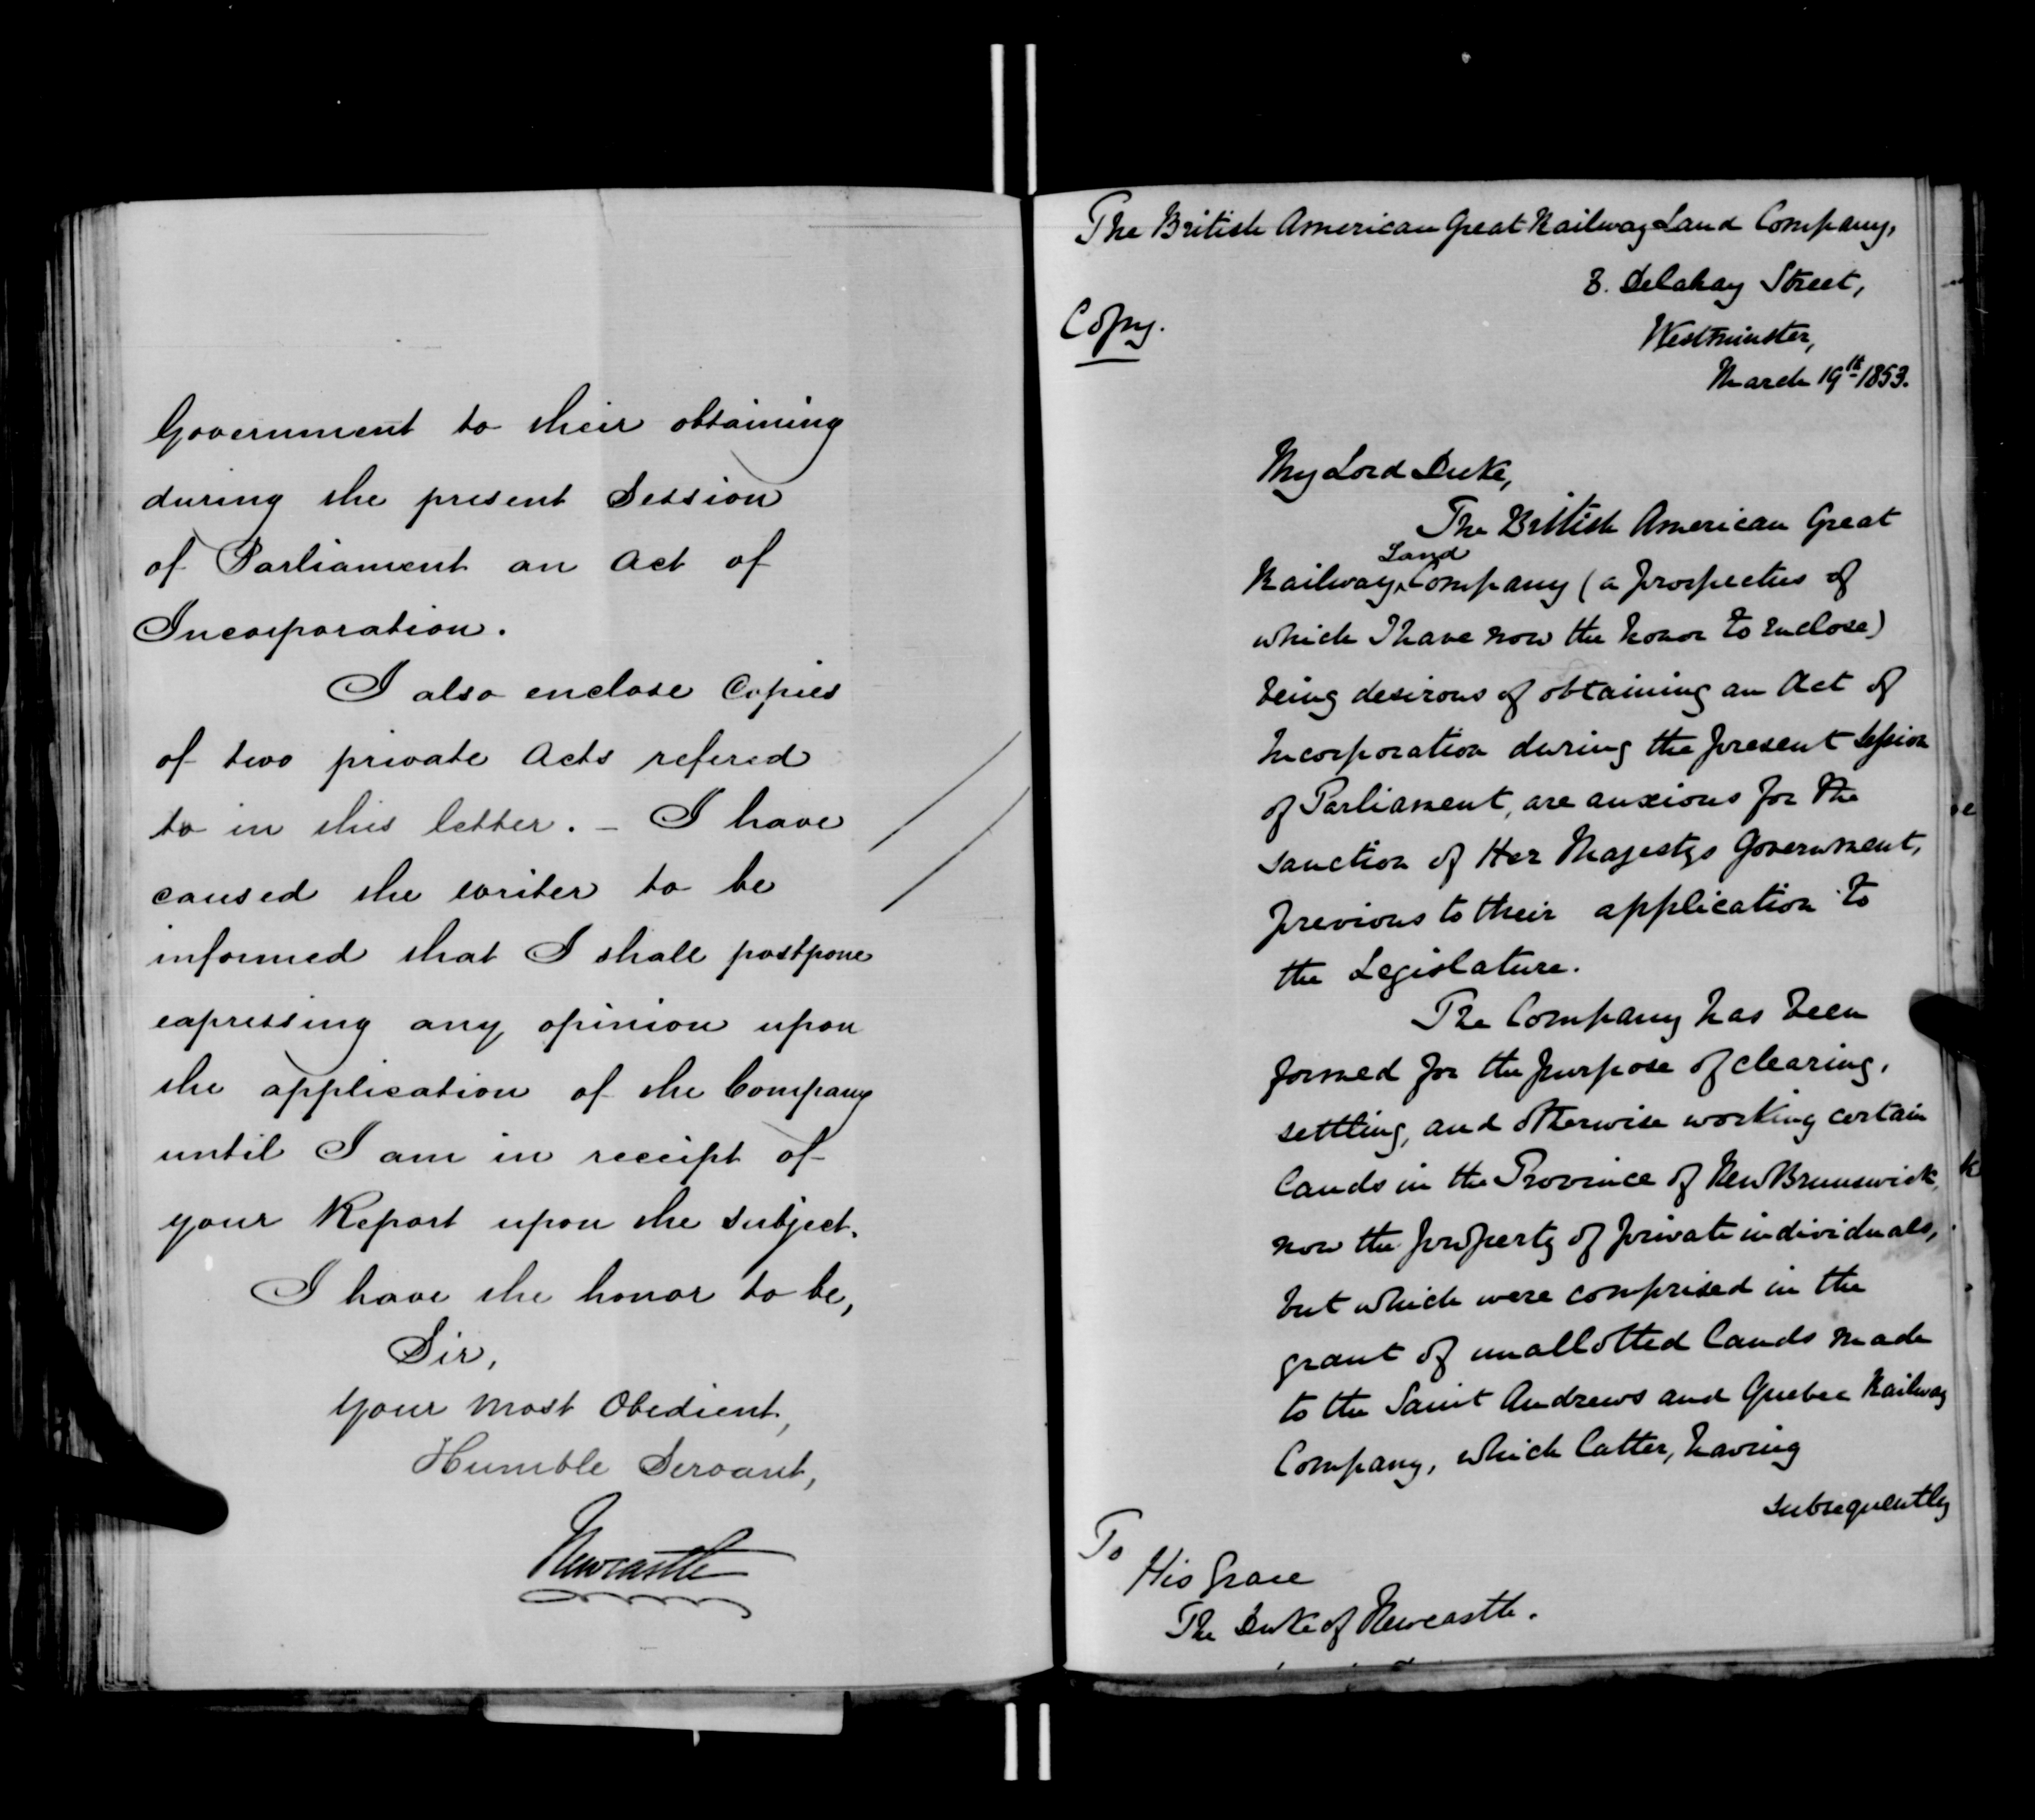 Government to their obtaining
during the present Session
of Parliament an Act of
Incorporation.
I also enclose Copies
of two private Acts refered
to in this letter. – I have
caused the writer to be
informed that I shall postpone
expressing any opinion upon
the application of the Company
until I am in receipt of
your Report upon the subject.
I have the honor to be,
Sir,
Your Most Obedient,
Humble Servant,
Newcastle
The British American Great Railway Land Company,
8. Delahay Street,
Copy.
Westminster,
March 19th 1853.
My Lord Duke,
The British American Great
Land
Railway Company (a prospectus of
which I have now the honor to enclose)
being desirous of obtaining an Act of
Incorporation during the present Session
of Parliament, are anxious for the
sanction of Her Majestys Government,
previous to their application to
the Legislature.
The Company has been
formed for the purpose of clearing,
settling, and otherwise working certain
lands in the Province of New Brunswick,
now the property of private individuals,
but which were comprised in the
grant of unallotted lands made
to the Saint Andrews and Quebec Railway
Company, which latter, having
subsequently
To
His Grace
The Duke of Newcastle.